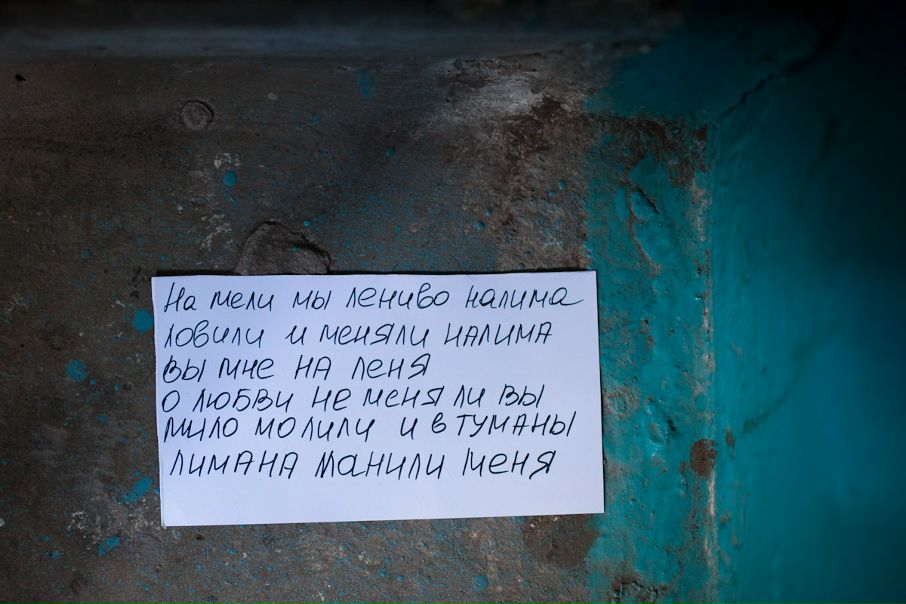 На мели мы лениво налима
ловили и меняли налима
вы мне на леня
о любви не меня ли вы
мило молили и в туманы
лимана манили меня